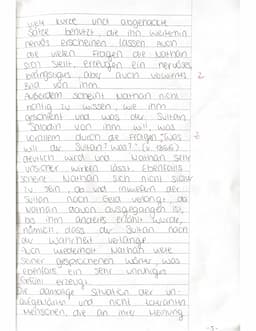 viele kurze und abgehackte
Sätze benutzt, die ihn weiterhin
nervös erscheinen lassen. Auch
die vielen Fragen die Nathan
sich stellt, erzeugen ein nervöses,
aber auch
Bild von ihm.
Außerdem scheint Nathan nicht
richtig zu wissen, wie ihm
geschieht und was der Sultan
Saladin von ihm will, was
vorallem durch die Fragen "was
will der Sultan? was?" (V.
deutlich wird und Nathan sehr
unsicher wirken lässt. Ebenfalls
scheint Nathan sich nicht sicher
zu sein, ob und inwiefern der
Sultan noch Geld verlangt, da
Nathan davon ausgegangen ist,
bis ihm anderes erzählt wurde,
nämlich, dass der Sultan nach
der Wahrheit verlange.
Auch wiederholt Nathan viele
seiner gesprochenen Wörter, was
ebenfalls ein sehr unruhiges
Gefühl erzeugt.
Die damalige Situation der un-
aufgeklärten und nicht toleranten
Menschen, die an ihre Meinung